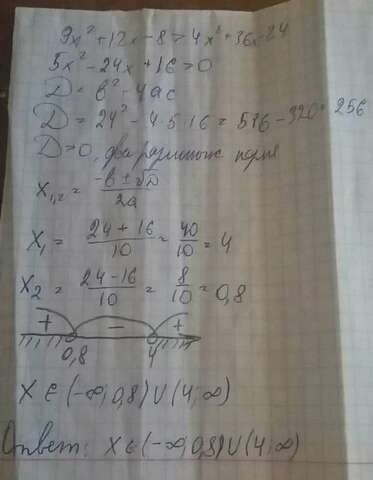 9x² + 12x - 8 > 4x² + 36x - 24
5x² - 24x + 16 > 0
D = b² - 4ac
D = 24² - 4·5·16 = 576 - 320 = 256
D > 0, два различных корня
x₁,₂ = (-b ± √D)/2a
x₁ = (24 + 16)/10 = 40/10 = 4
x₂ = (24 - 16)/10 = 8/10 = 0,8
+ - +
0,8 4
x ∈ (-∞; 0,8) ∪ (4; ∞)
Ответ: x ∈ (-∞; 0,8) ∪ (4; ∞)